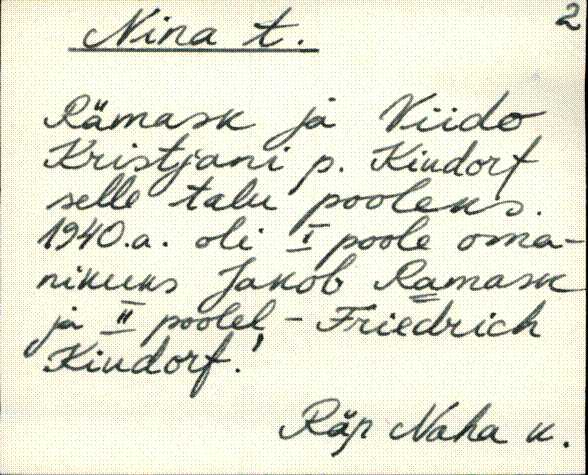 2
Nina t.
Rämask ja Viido
Kristjani p. Kindorf
selle talu pooleks.
1940.a. oli I poole oma-
nikuks Jakob Ramask
ja II poolel - Friedrich
Kindorf.
Räp Naha k.